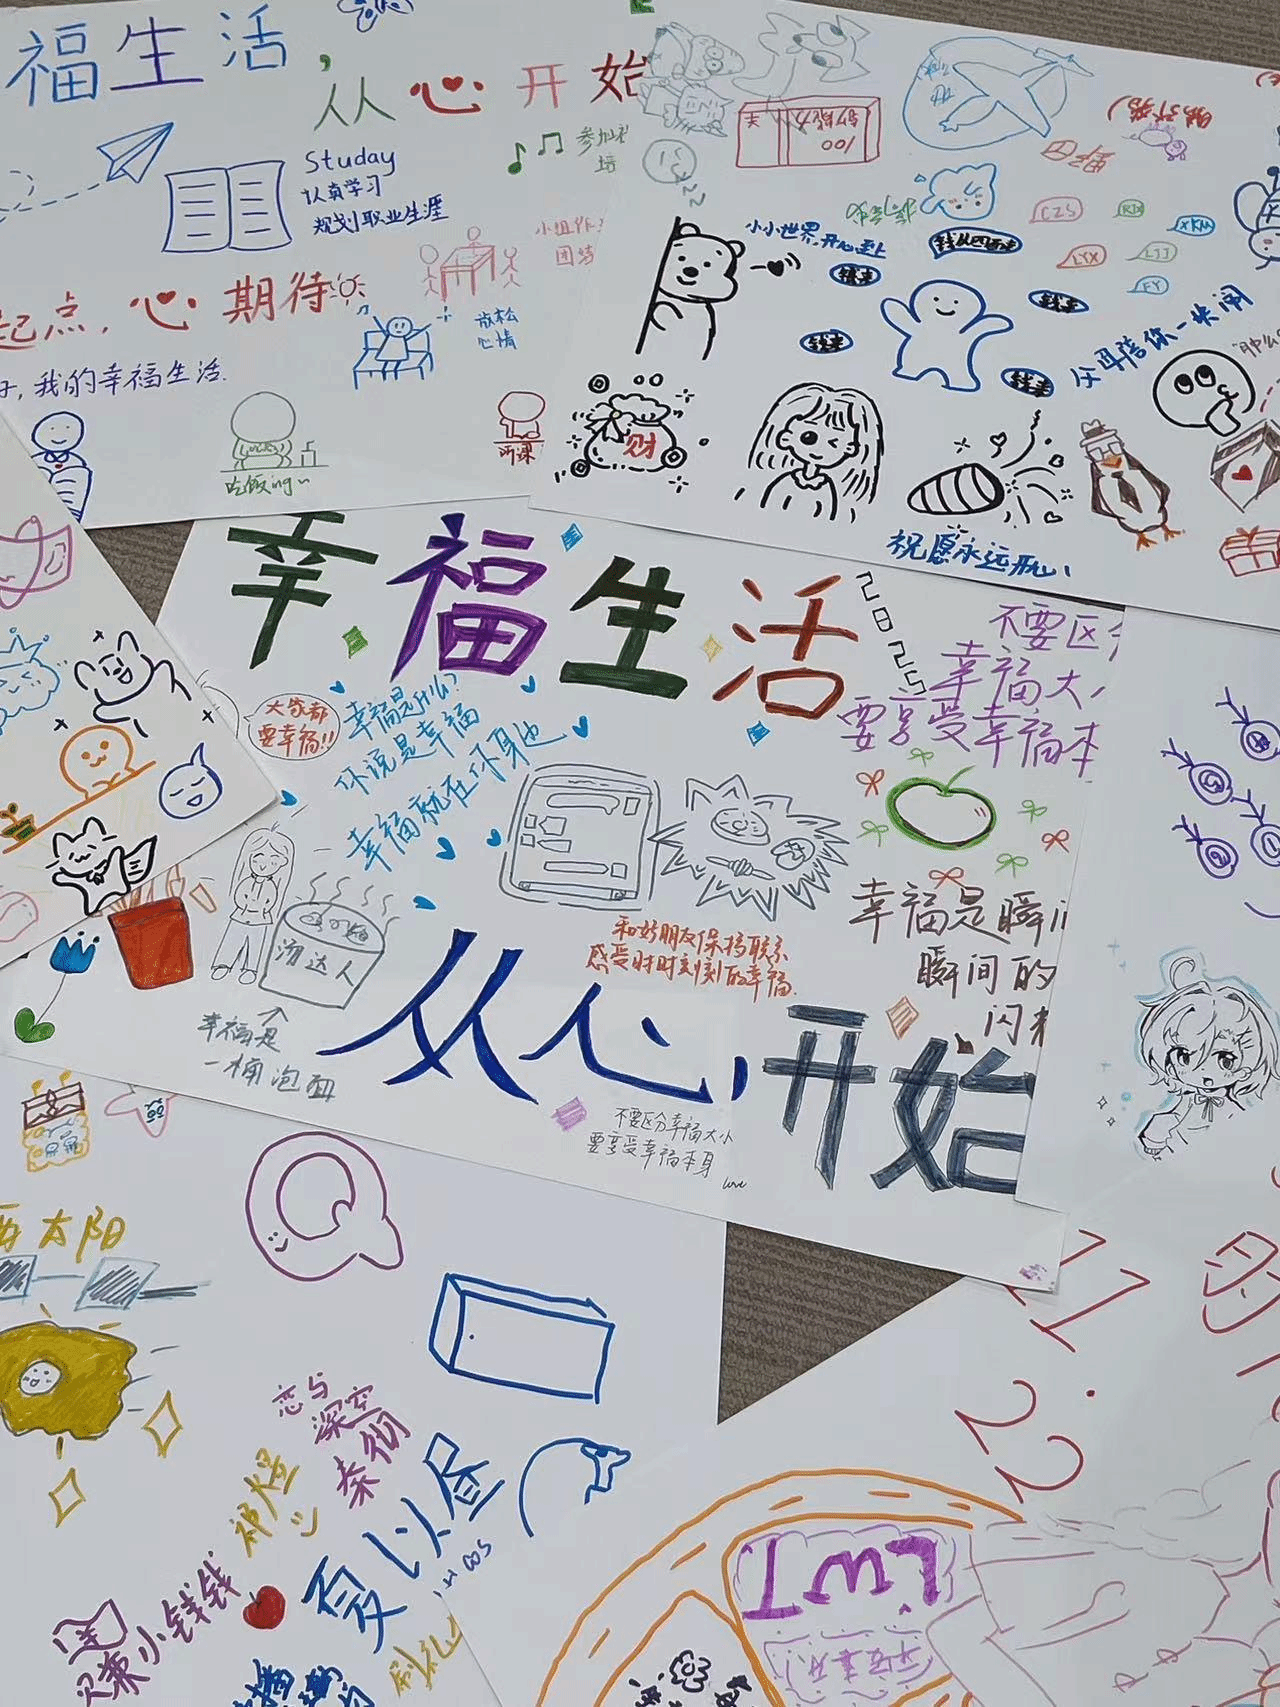 福生活,
从心开始
Studay
认真学习
规划职业生涯
放松
心情
起点,心期待
,我的幸福生活.
吃饭ing~
听课
100
小小世界,开心至上
钱来
钱从四面来
钱来
钱来
钱来
CZS
XKM
LYX
LJJ
FY
财
祝愿永远开心!
幸福生活
2025
大家都
要幸福!!
幸福是什么?
你说是幸福
幸福就在你身边
不要区
幸福大
要享受幸福本
幸福是瞬间
瞬间的
闪
汤达人
幸福是
一桶泡面
和好朋友保持联系
感受时时刻刻的幸福.
从心,开始
不要区分幸福大小
要享受幸福本身
love
太阳
恋与
深空
秦彻
祁煜
夏以昼
赚小钱钱
11.22
LWT